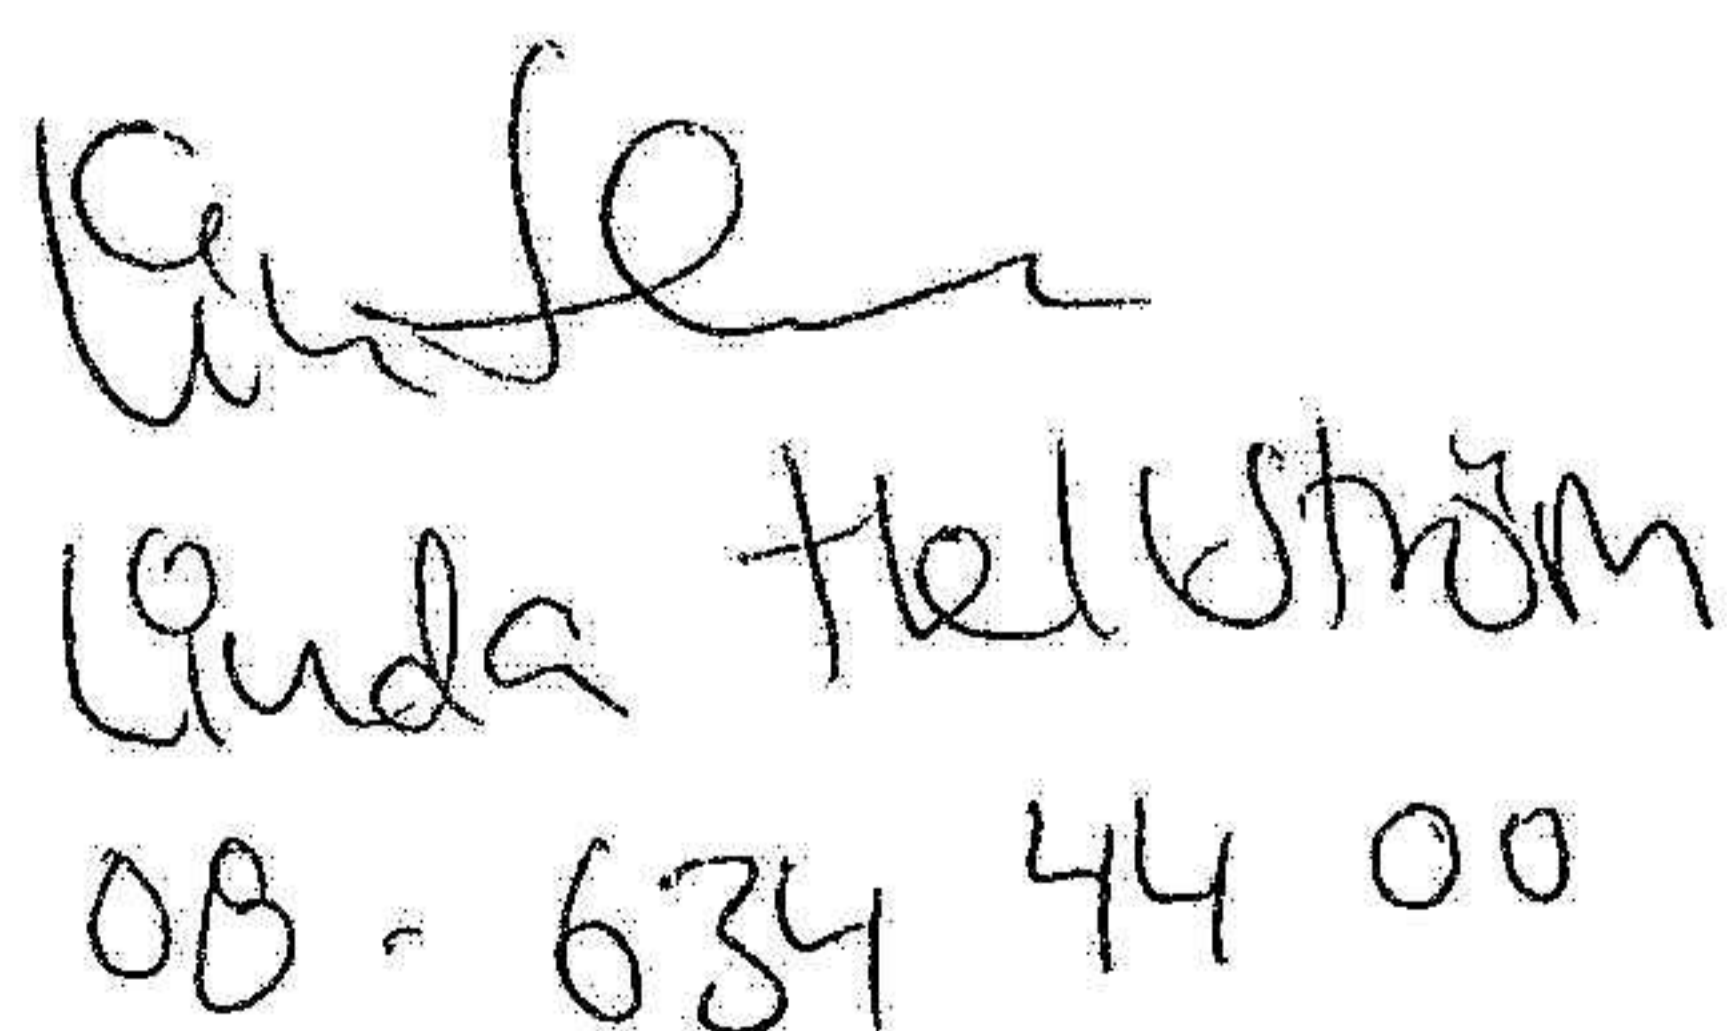 Linda Hellström
08 - 634 44 00